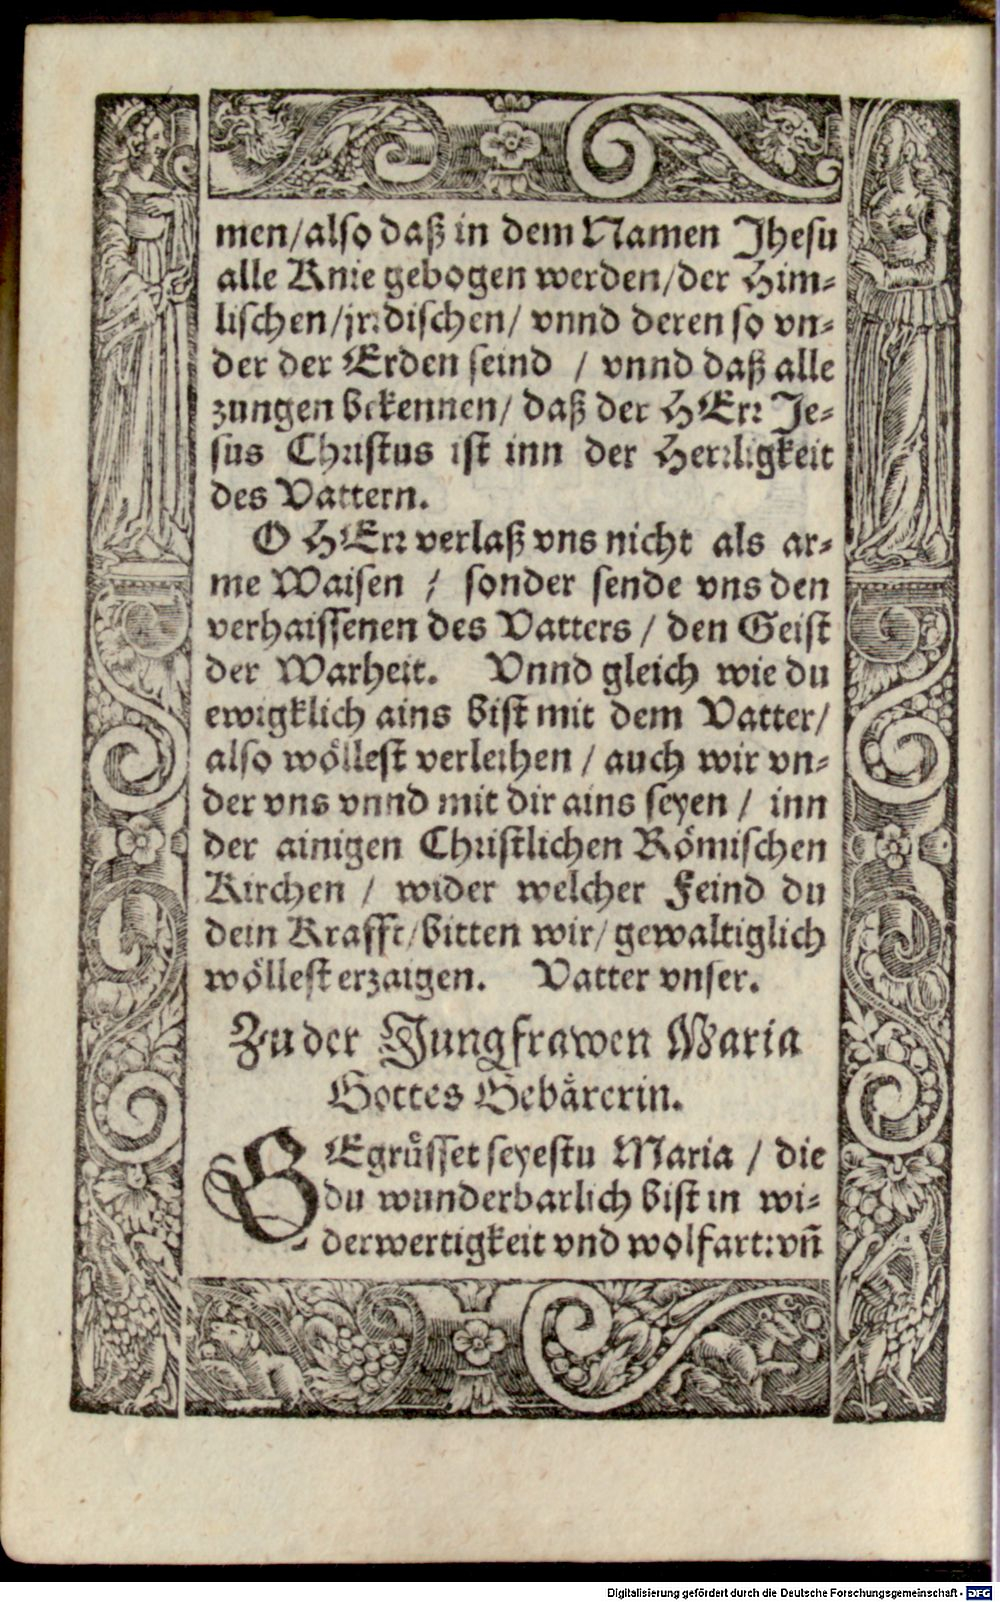 men/also daß in dem Namen Jhesu
alle Knie gebogen werden/der Him-
lischen/jrrdischen/ vnnd deren so vn-
der der Erden seind / vnnd daß alle
zungen bekennen/ daß der HErr Je-
sus Christus ist inn der Herrligkeit
des Vattern.
O HErr verlaß vns nicht als ar-
me Waisen / sonder sende vns den
verhaissenen des Vatters / den Geist
der Warheit. Vnnd gleich wie du
ewigklich ains bist mit dem Vatter/
also wöllest verleihen / auch wir vn-
der vns vnnd mit dir ains seyen / inn
der ainigen Christlichen Römischen
Kirchen / wider welcher Feind du
dein Krafft/bitten wir/gewaltiglich
wöllest erzaigen. Vatter vnser.
Zu der Jungfrawen Maria
Gottes Gebärerin.
BEgrüsset seyestu Maria / die
du wunderbarlich bist in wi-
derwertigkeit vnd wolfart: vñ
Digitalisierung gefördert durch die Deutsche Forschungsgemeinschaft - DFG